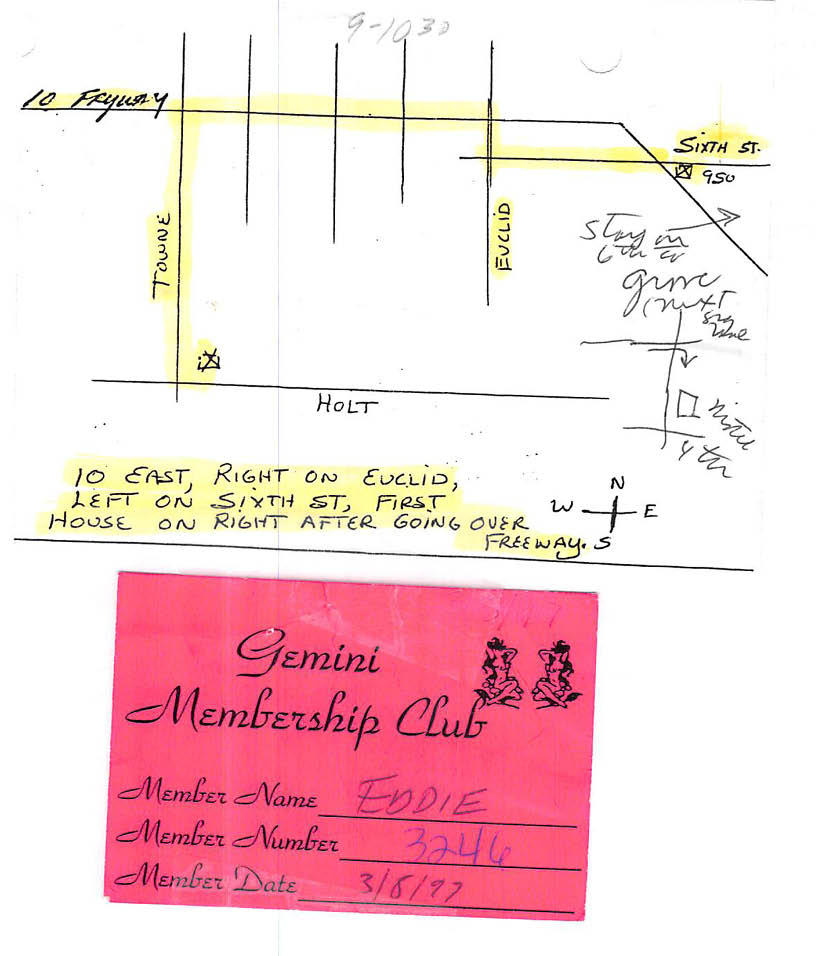 9-1030
10 FRYWAY
SIXTH ST.
950
TOWNE
EUCLID
Stay on
6th to
grove
(next
HOLT
4th
10 EAST, RIGHT ON EUCLID,
LEFT ON SIXTH ST, FIRST
HOUSE ON RIGHT AFTER GOING OVER
FREEWAY.
N
W E
S
Gemini
Membership Club
Member Name EDDIE
Member Number 3246
Member Date 3/8/97